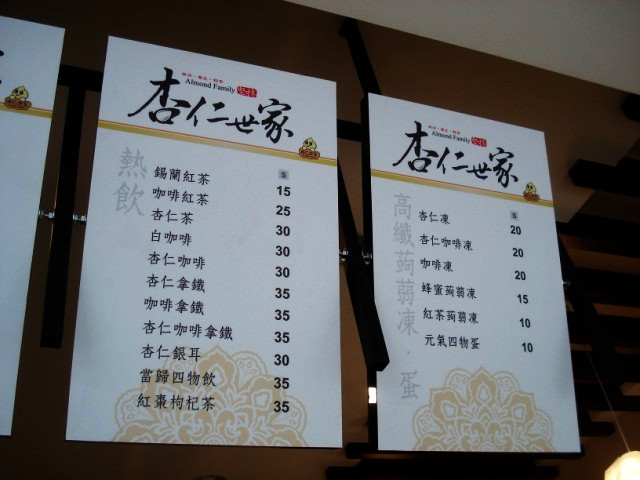 Almond Family
杏仁世家
熱飲
$
錫蘭紅茶 15
咖啡紅茶 25
杏仁茶 30
白咖啡 30
杏仁咖啡 30
杏仁拿鐵 35
咖啡拿鐵 35
杏仁咖啡拿鐵 35
杏仁銀耳 30
當歸四物飲 35
紅棗枸杞茶 35
Almond Family
杏仁世家
高纖蒟蒻凍・蛋
$
杏仁凍 20
杏仁咖啡凍 20
咖啡凍 20
蜂蜜蒟蒻凍 15
紅茶蒟蒻凍 10
元氣四物蛋 10